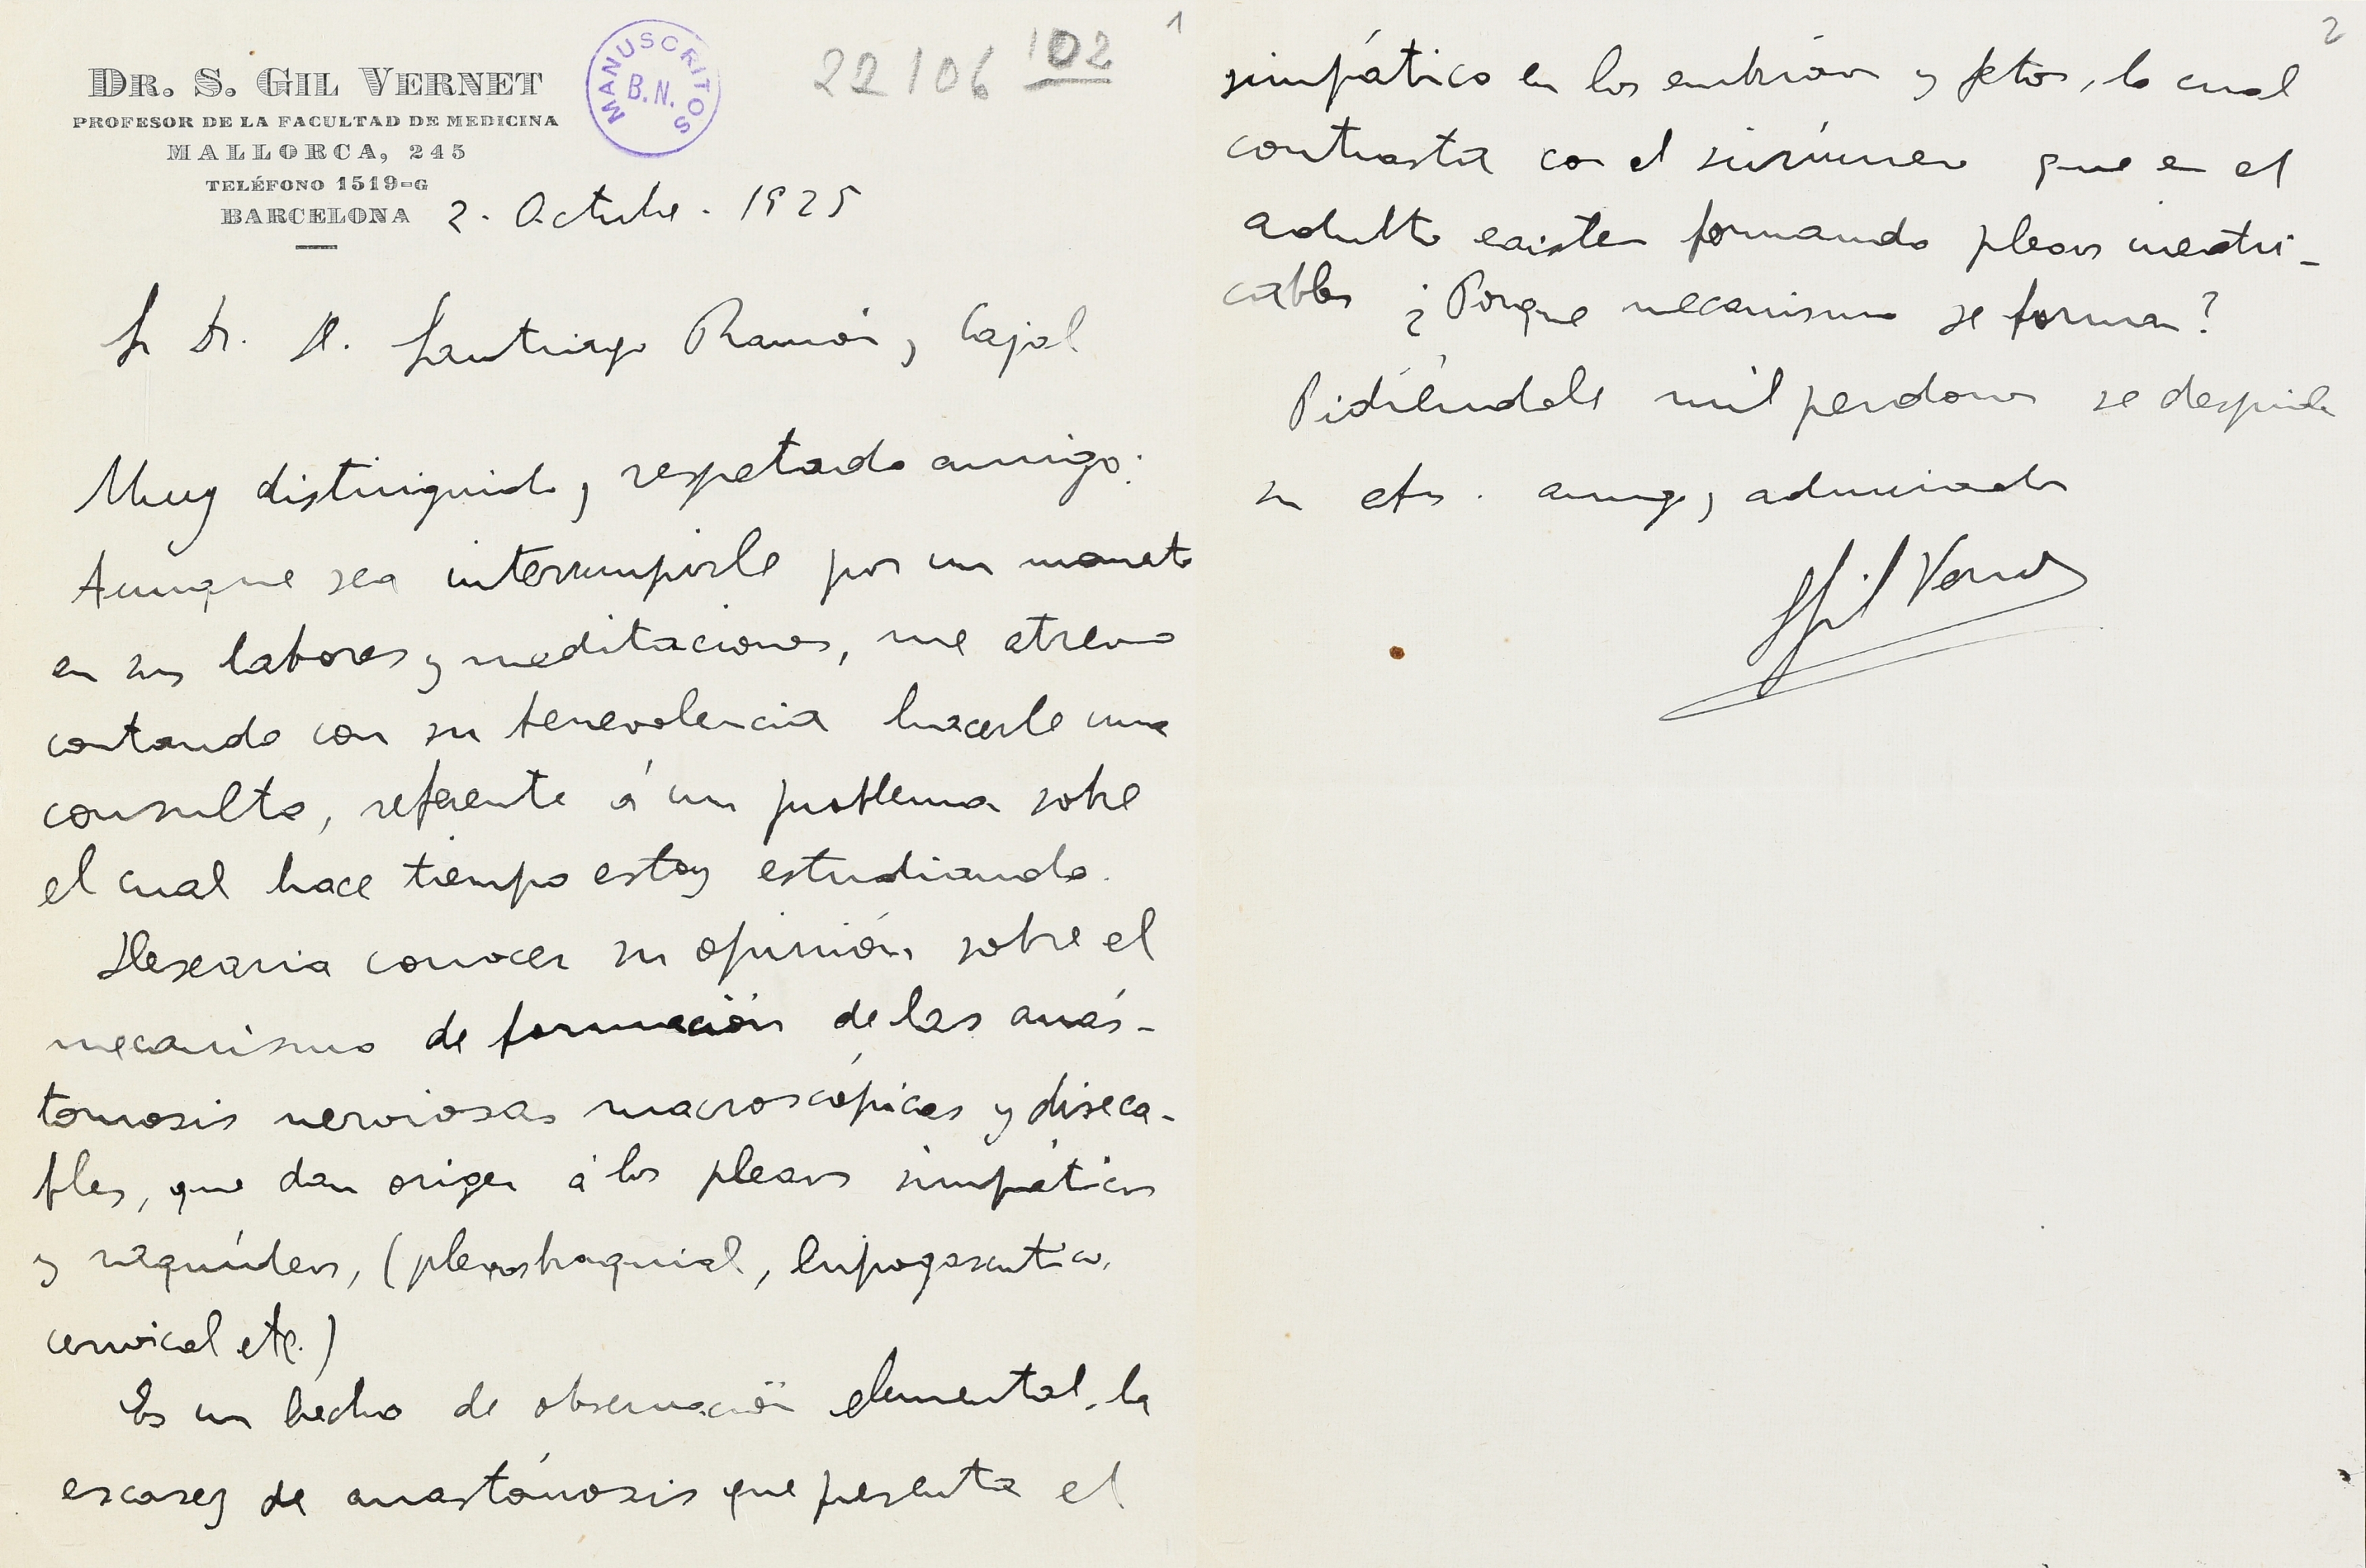 DR. S. GIL VERNET
PROFESOR DE LA FACULTAD DE MEDICINA
MALLORCA, 245
TELÉFONO 1519=G
BARCELONA
MANUSCRITOS
B.N.
22106 102
1
2. Octubre. 1925
Sr Dr. D. Santiago Ramón y Cajal
Muy distinguido y respetado amigo:
Aunque sea interrumpirle por un momento
en sus labores y meditaciones, me atrevo
contando con su benevolencia hacerle una
consulta, referente á un problema sobre
el cual hace tiempo estoy estudiando.
Desearia conocer su opinión sobre el
mecanismo de formación de las anás-
tomosis nerviosas macroscópicas y diseca-
bles, que dan origen á los plexos simpáticos
y raquídeos, (plexos braquial, hipogasentico,
cervical etc.)
Es un hecho de observación elemental, la
escasez de anastómosis que presenta el
2
simpático en los embriones y fetos, lo cual
contrasta con el sinnúmero que en el
adulto existen formando plexos inextri-
cables ¿Porque mecanismo se forman?
Pidiéndole mil perdones se despide
su afm. amigo y admirador
SGil Vernet